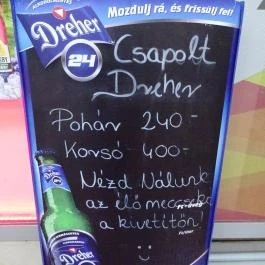 ALKOHOLMENTES
Mozdulj rá, és frissülj fel!
Dreher
24
Csapolt
Dreher
Pohár 240-
Korsó 400-
Nézd Nálunk
az élő meccseket
a kivetítőn!
Dreher
24